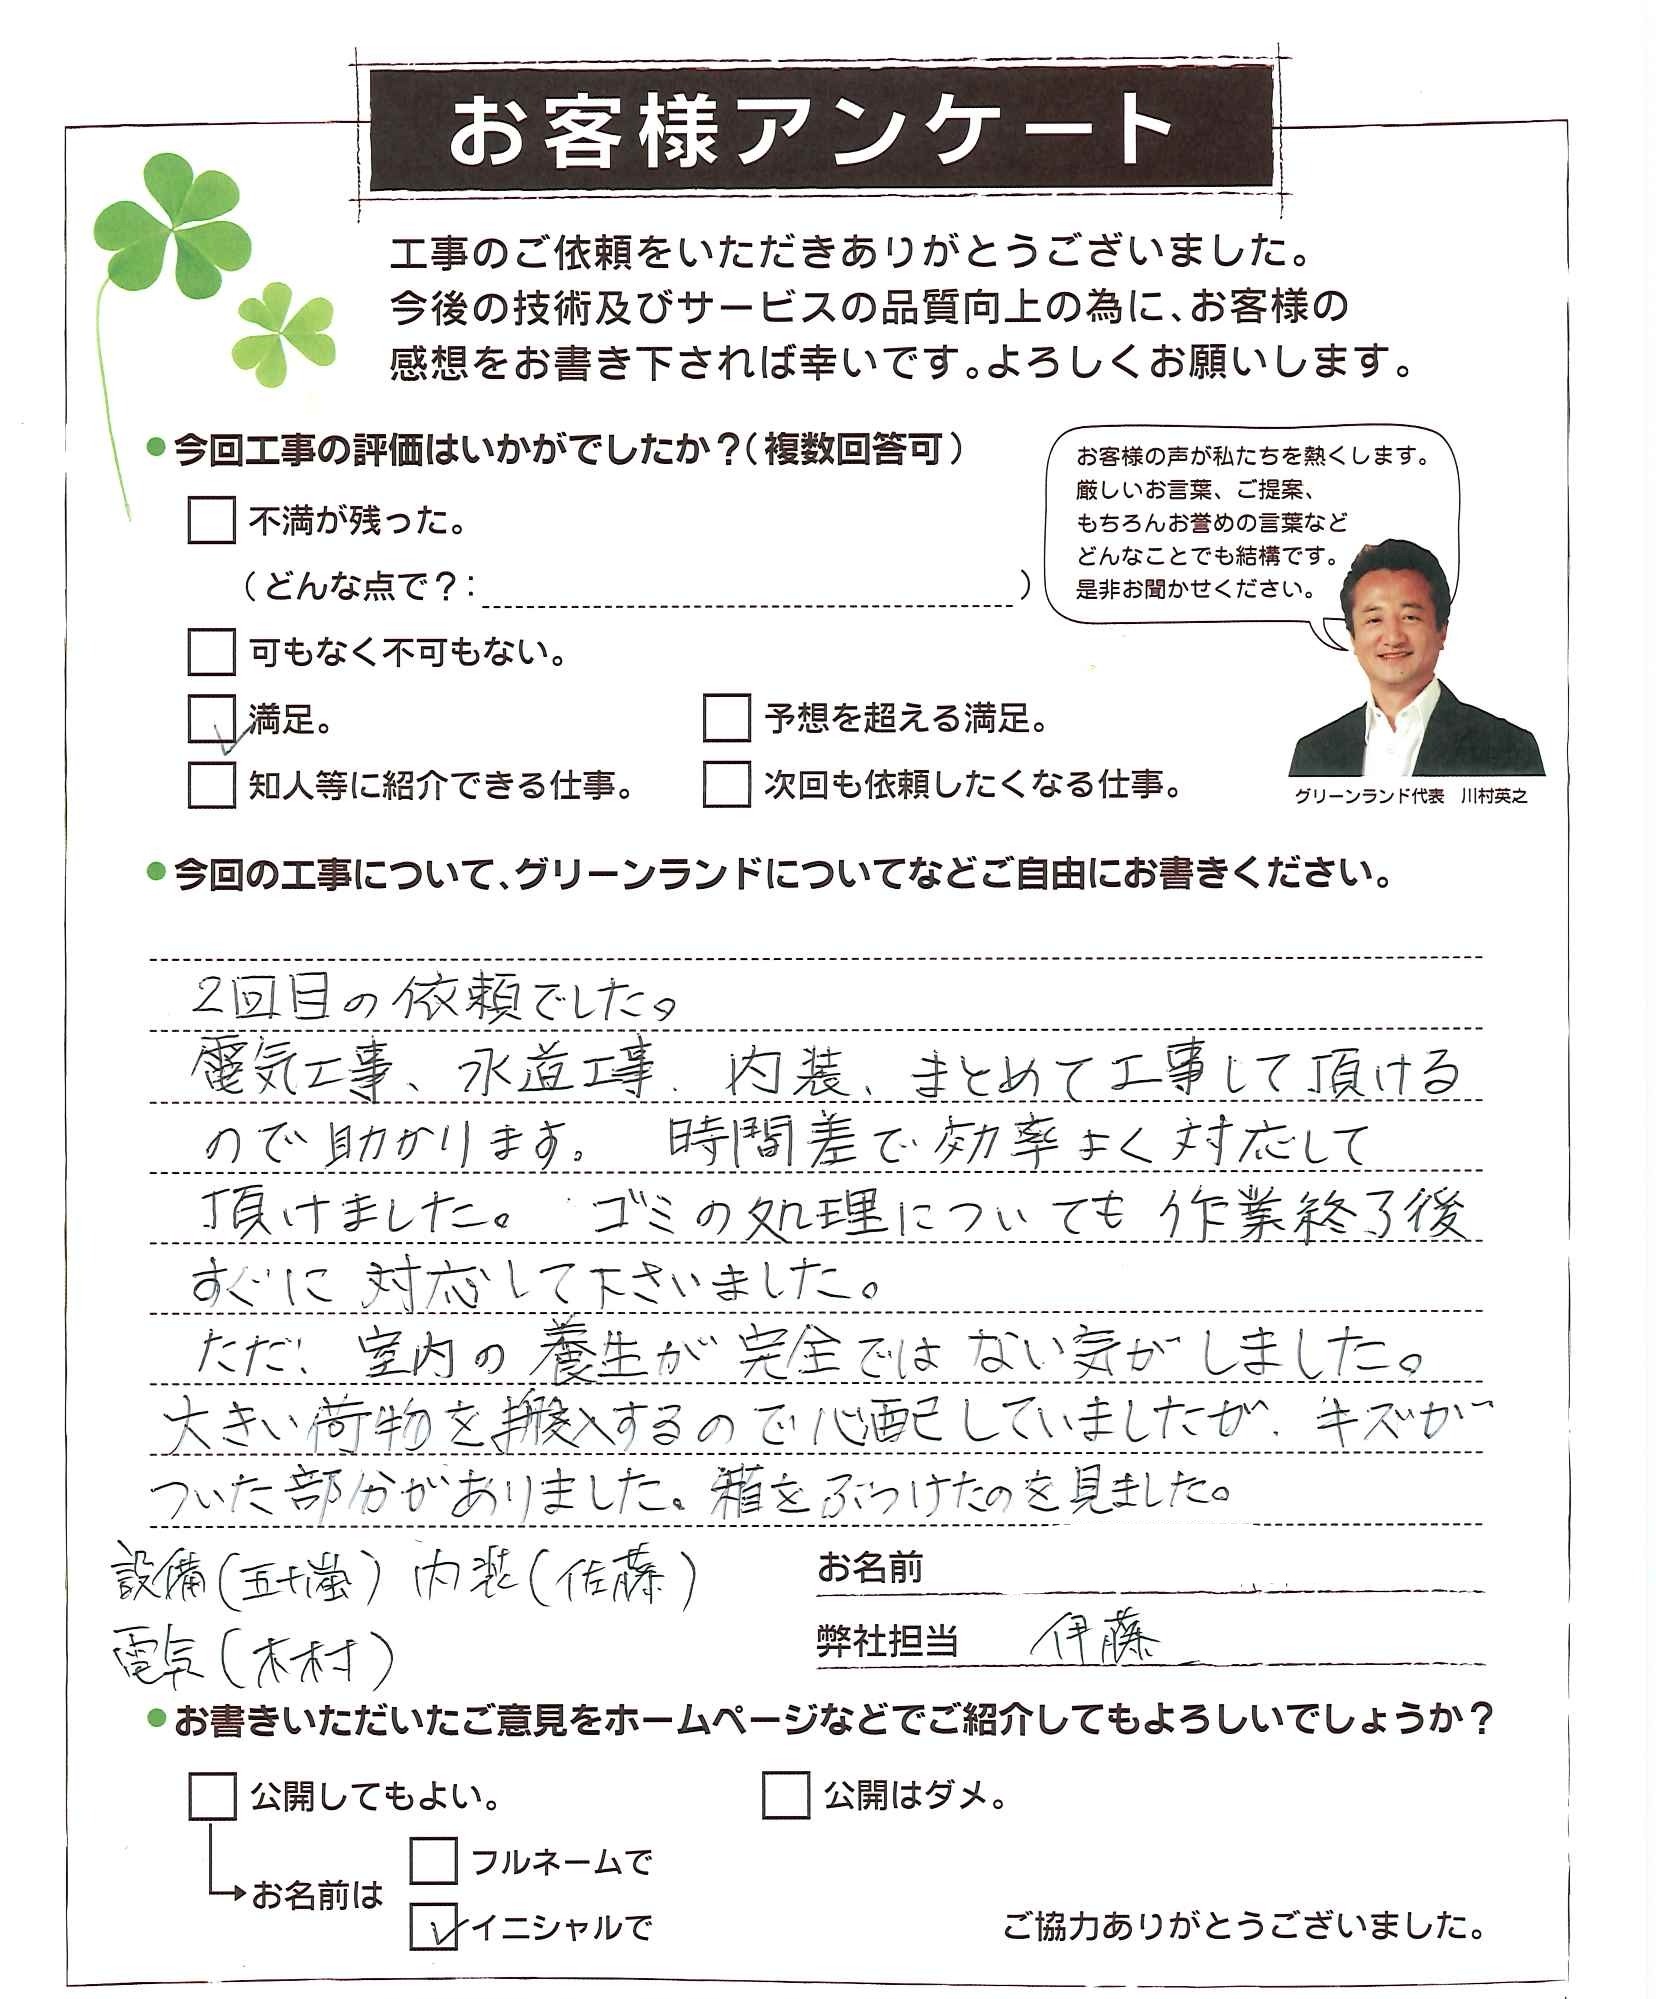 お客様アンケート
工事のご依頼をいただきありがとうございました。
今後の技術及びサービスの品質向上の為に、お客様の
感想をお書き下されば幸いです。よろしくお願いします。
●今回工事の評価はいかがでしたか？（複数回答可）
不満が残った。
（どんな点で？： ）
可もなく不可もない。
満足。
予想を超える満足。
知人等に紹介できる仕事。
次回も依頼したくなる仕事。
お客様の声が私たちを熱くします。
厳しいお言葉、ご提案、
もちろんお誉めの言葉など
どんなことでも結構です。
是非お聞かせください。
グリーンランド代表　川村英之
●今回の工事について、グリーンランドについてなどご自由にお書きください。
2回目の依頼でした。
電気工事、水道工事、内装、まとめて工事して頂ける
ので助かります。　時間差で効率よく対応して
頂けました。　ゴミの処理についても作業終了後
すぐに対応して下さいました。
ただ、室内の養生が完全ではない気がしました。
大きい荷物を搬入するので心配していましたが、キズが
ついた部分がありました。箱をぶつけたのを見ました。
設備（五十嵐）内装（佐藤）
電気（木村）
お名前
弊社担当　伊藤
●お書きいただいたご意見をホームページなどでご紹介してもよろしいでしょうか？
公開してもよい。
公開はダメ。
お名前は
フルネームで
イニシャルで
ご協力ありがとうございました。